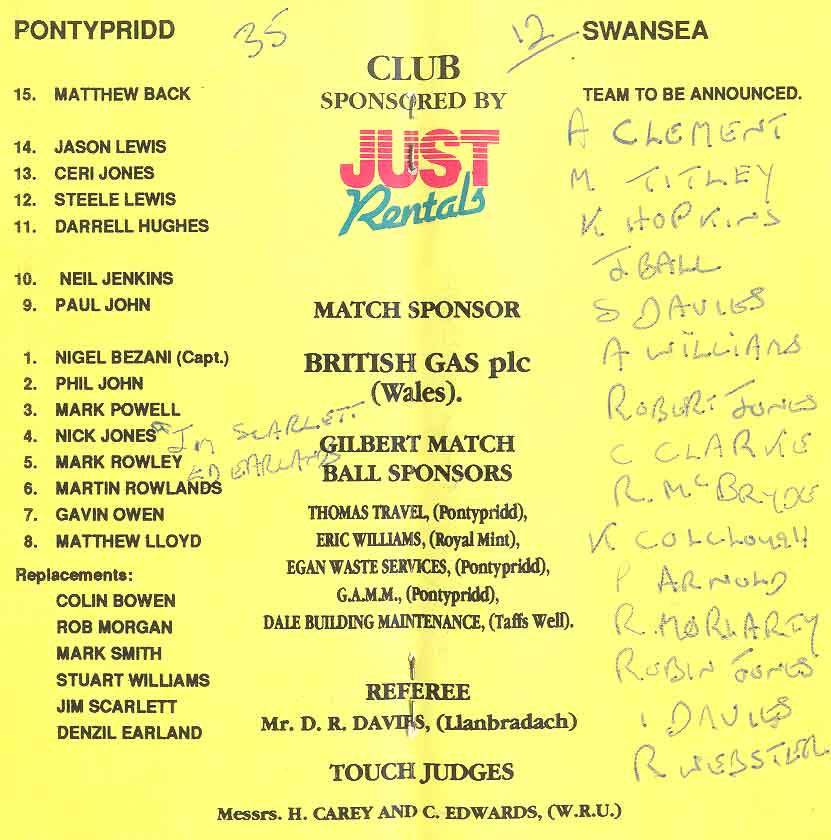 PONTYPRIDD
35
15. MATTHEW BACK
14. JASON LEWIS
13. CERI JONES
12. STEELE LEWIS
11. DARRELL HUGHES
10. NEIL JENKINS
9. PAUL JOHN
1. NIGEL BEZANI (Capt.)
2. PHIL JOHN
3. MARK POWELL
4. NICK JONES
JIM SCARLETT
5. MARK ROWLEY
ED EARLAND
6. MARTIN ROWLANDS
7. GAVIN OWEN
8. MATTHEW LLOYD
Replacements:
COLIN BOWEN
ROB MORGAN
MARK SMITH
STUART WILLIAMS
JIM SCARLETT
DENZIL EARLAND
CLUB
SPONSORED BY
JUST
Rentals
MATCH SPONSOR
BRITISH GAS plc
(Wales).
GILBERT MATCH
BALL SPONSORS
THOMAS TRAVEL, (Pontypridd),
ERIC WILLIAMS, (Royal Mint),
EGAN WASTE SERVICES, (Pontypridd),
G.A.M.M., (Pontypridd),
DALE BUILDING MAINTENANCE, (Taffs Well).
REFEREE
Mr. D. R. DAVIES, (Llanbradach)
TOUCH JUDGES
Messrs. H. CAREY AND C. EDWARDS, (W.R.U.)
12
SWANSEA
TEAM TO BE ANNOUNCED.
A CLEMENT
M TITLEY
K HOPKINS
J. BALL
S DAVIES
A WILLIAMS
ROBERT JONES
C CLARKE
R. McBRYDE
K COLCLOUGH
P ARNOLD
R. MORIARTY
ROBIN JONES
I DAVIES
R WEBSTER